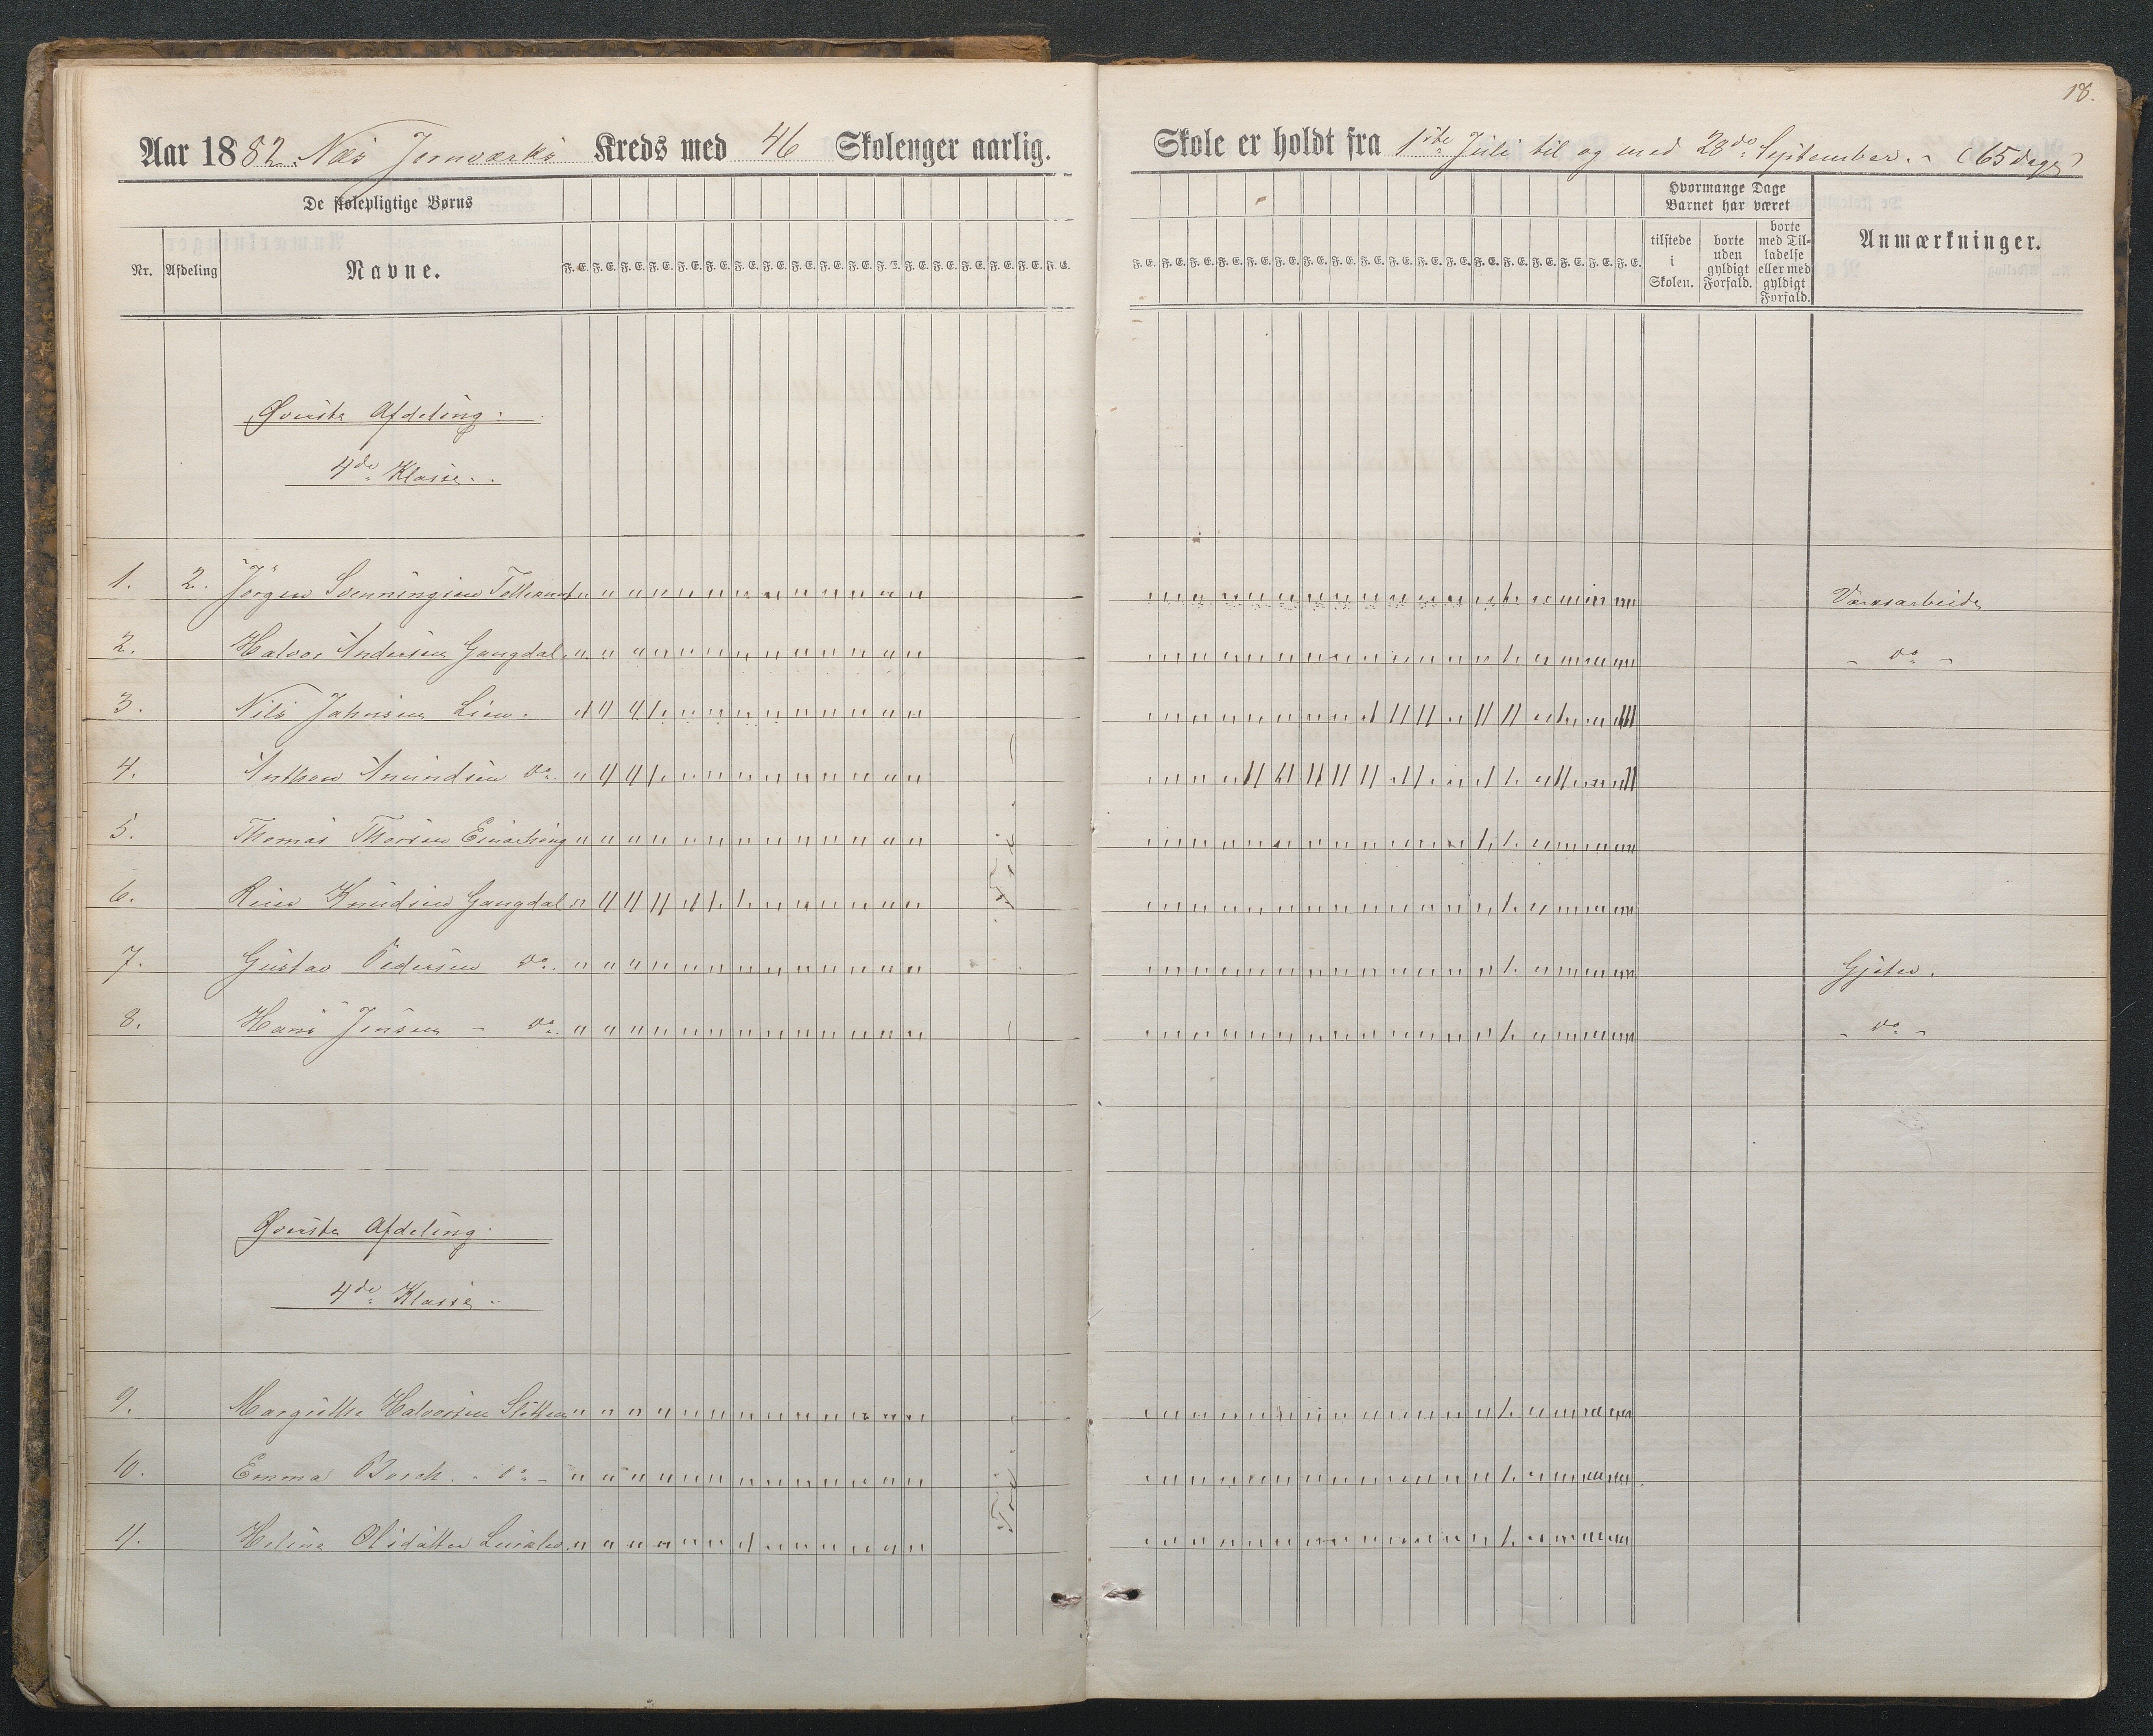 18.
Aar 1882. Næs Jernværks Kreds med 46 Skolenger aarlig.
Skole er holdt fra 1ste Juli til og med 28de September. - (65 dage)
De skolepligtige Børns
Nr. Afdeling Navne.
F. E. F. E. F. E. F. E. F. E. F. E. F. E. F. E. F. E. F. E. F. E. F. E. F. E. F. E. F. E. F. E. F. E. F. E.
F. E. F. E. F. E. F. E. F. E. F. E. F. E. F. E. F. E. F. E. F. E. F. E. F. E. F. E. F. E. F. E. F. E. F. E.
Hvormange Dage
Barnet har været
tilstede
i
Skolen.
borte
uden
gyldigt
Forfald.
borte
med Til-
ladelse
eller med
gyldigt
Forfald.
Anmærkninger.
Øverste Afdeling.
4de Klasse.
1. 2. Jörgen
2. Halvor Andersen Gangdal
- do -
3. Nils Johnsen Lien.
4. Anthon Amundsen do.
5. Thomas Thorsen
6. Knudsen Gangdal
7. Gustav Pedersen do. Gjeter.
8. Hans Jensen - do. - do -
Øverste Afdeling.
4de Klasse.
9. Halvorsen
10. Emma - do -
11. Helene Olsdatter